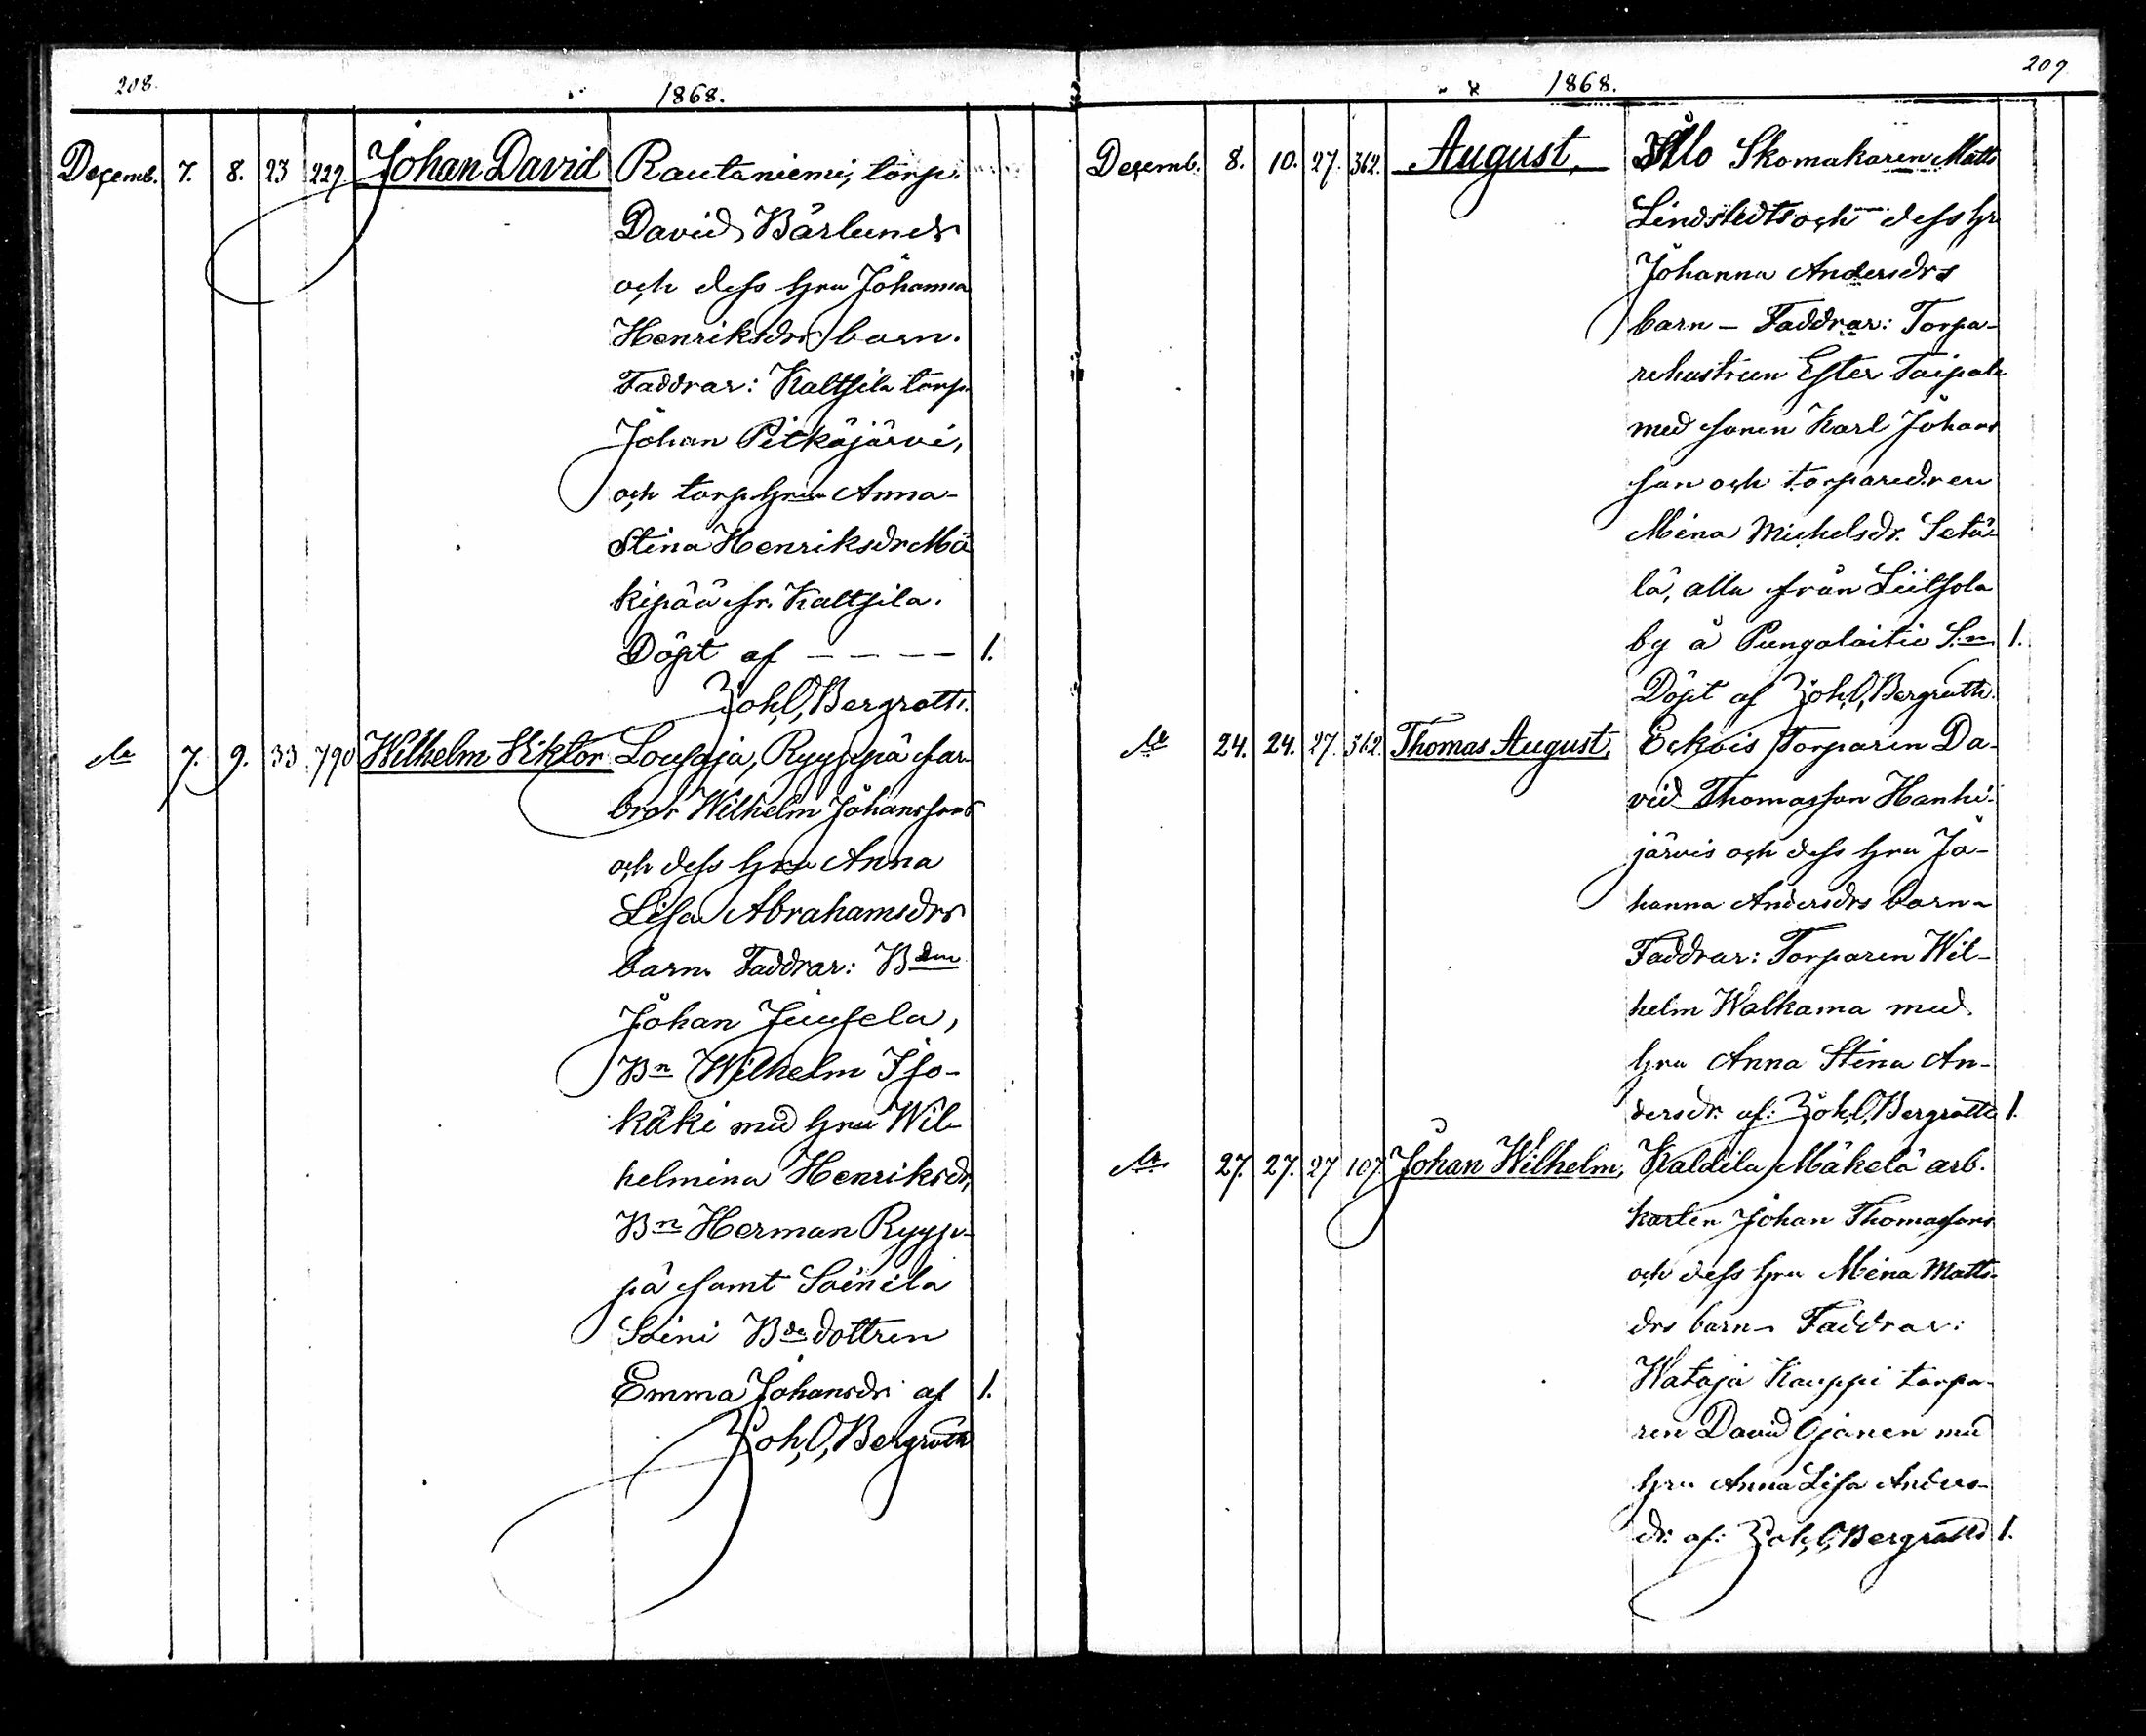 208.
1868.
Decemb. 7. 8. 23 229. Johan David Rautaniemi, torp.
David Bärlunds
och dess hru Johanna
Henriksdrs barn.
Faddrar: Kaltsila torp.
Johan Pitkäjärvi,
och torp. hrun Anna-
Stina Henriksdr Mä
kipää fr. Kaltsila.
Döpt af – – – – 1.
Joh. O. Bergroth.
7. 9. 33 790 Wilhelm Viktor Lousaja, Ryyppä far
bror Wilhelm Johanssons
och dess hru Anna
Lisa Abrahamsdrs
barn. Faddrar: Bdn
Johan Juusela,
Bn Wilhelm Iso-
käki med hru Wil
helmina Henriksdr,
Bn Herman Ryyp-
pä samt Soinila
Soini Bde dottren
Emma Johansdr af 1.
Joh. O. Bergroth
209
1868.
Decemb. 8. 10. 27. 362. August, Illo Skomakaren Matts
Lindstedts och dess hr
Johanna Andersdrs
barn – Faddrar: Torpa-
rehustrun Ester Taipale
med sonen Karl Johans
son och torparedren
Mina Michelsdr. Setä-
lä, alla från Liitsola
by å Pungalaitio S:n 1.
Döpt af Joh. O. Bergroth.
24. 24. 27. 362. Thomas August, Eckois Torparen Da-
vid Thomasson Hanhi-
järvis och dess hru Jo-
hanna Andersdrs barn –
Faddrar: Torparen Wil-
helm Walkama med
hru Anna Stina An-
dersdr. af: Joh. O. Bergroth 1.
27. 27. 27 107 Johan Wilhelm, Kaldila Mäkelä arb.
karlen Johan Thomassons
och dess hru Mina Matts-
drs barn – Faddrar:
Wataja Kauppi torpa-
ren David Ojanen med
hru Anna Lisa Anders-
dr. af: Joh. O. Bergroth 1.